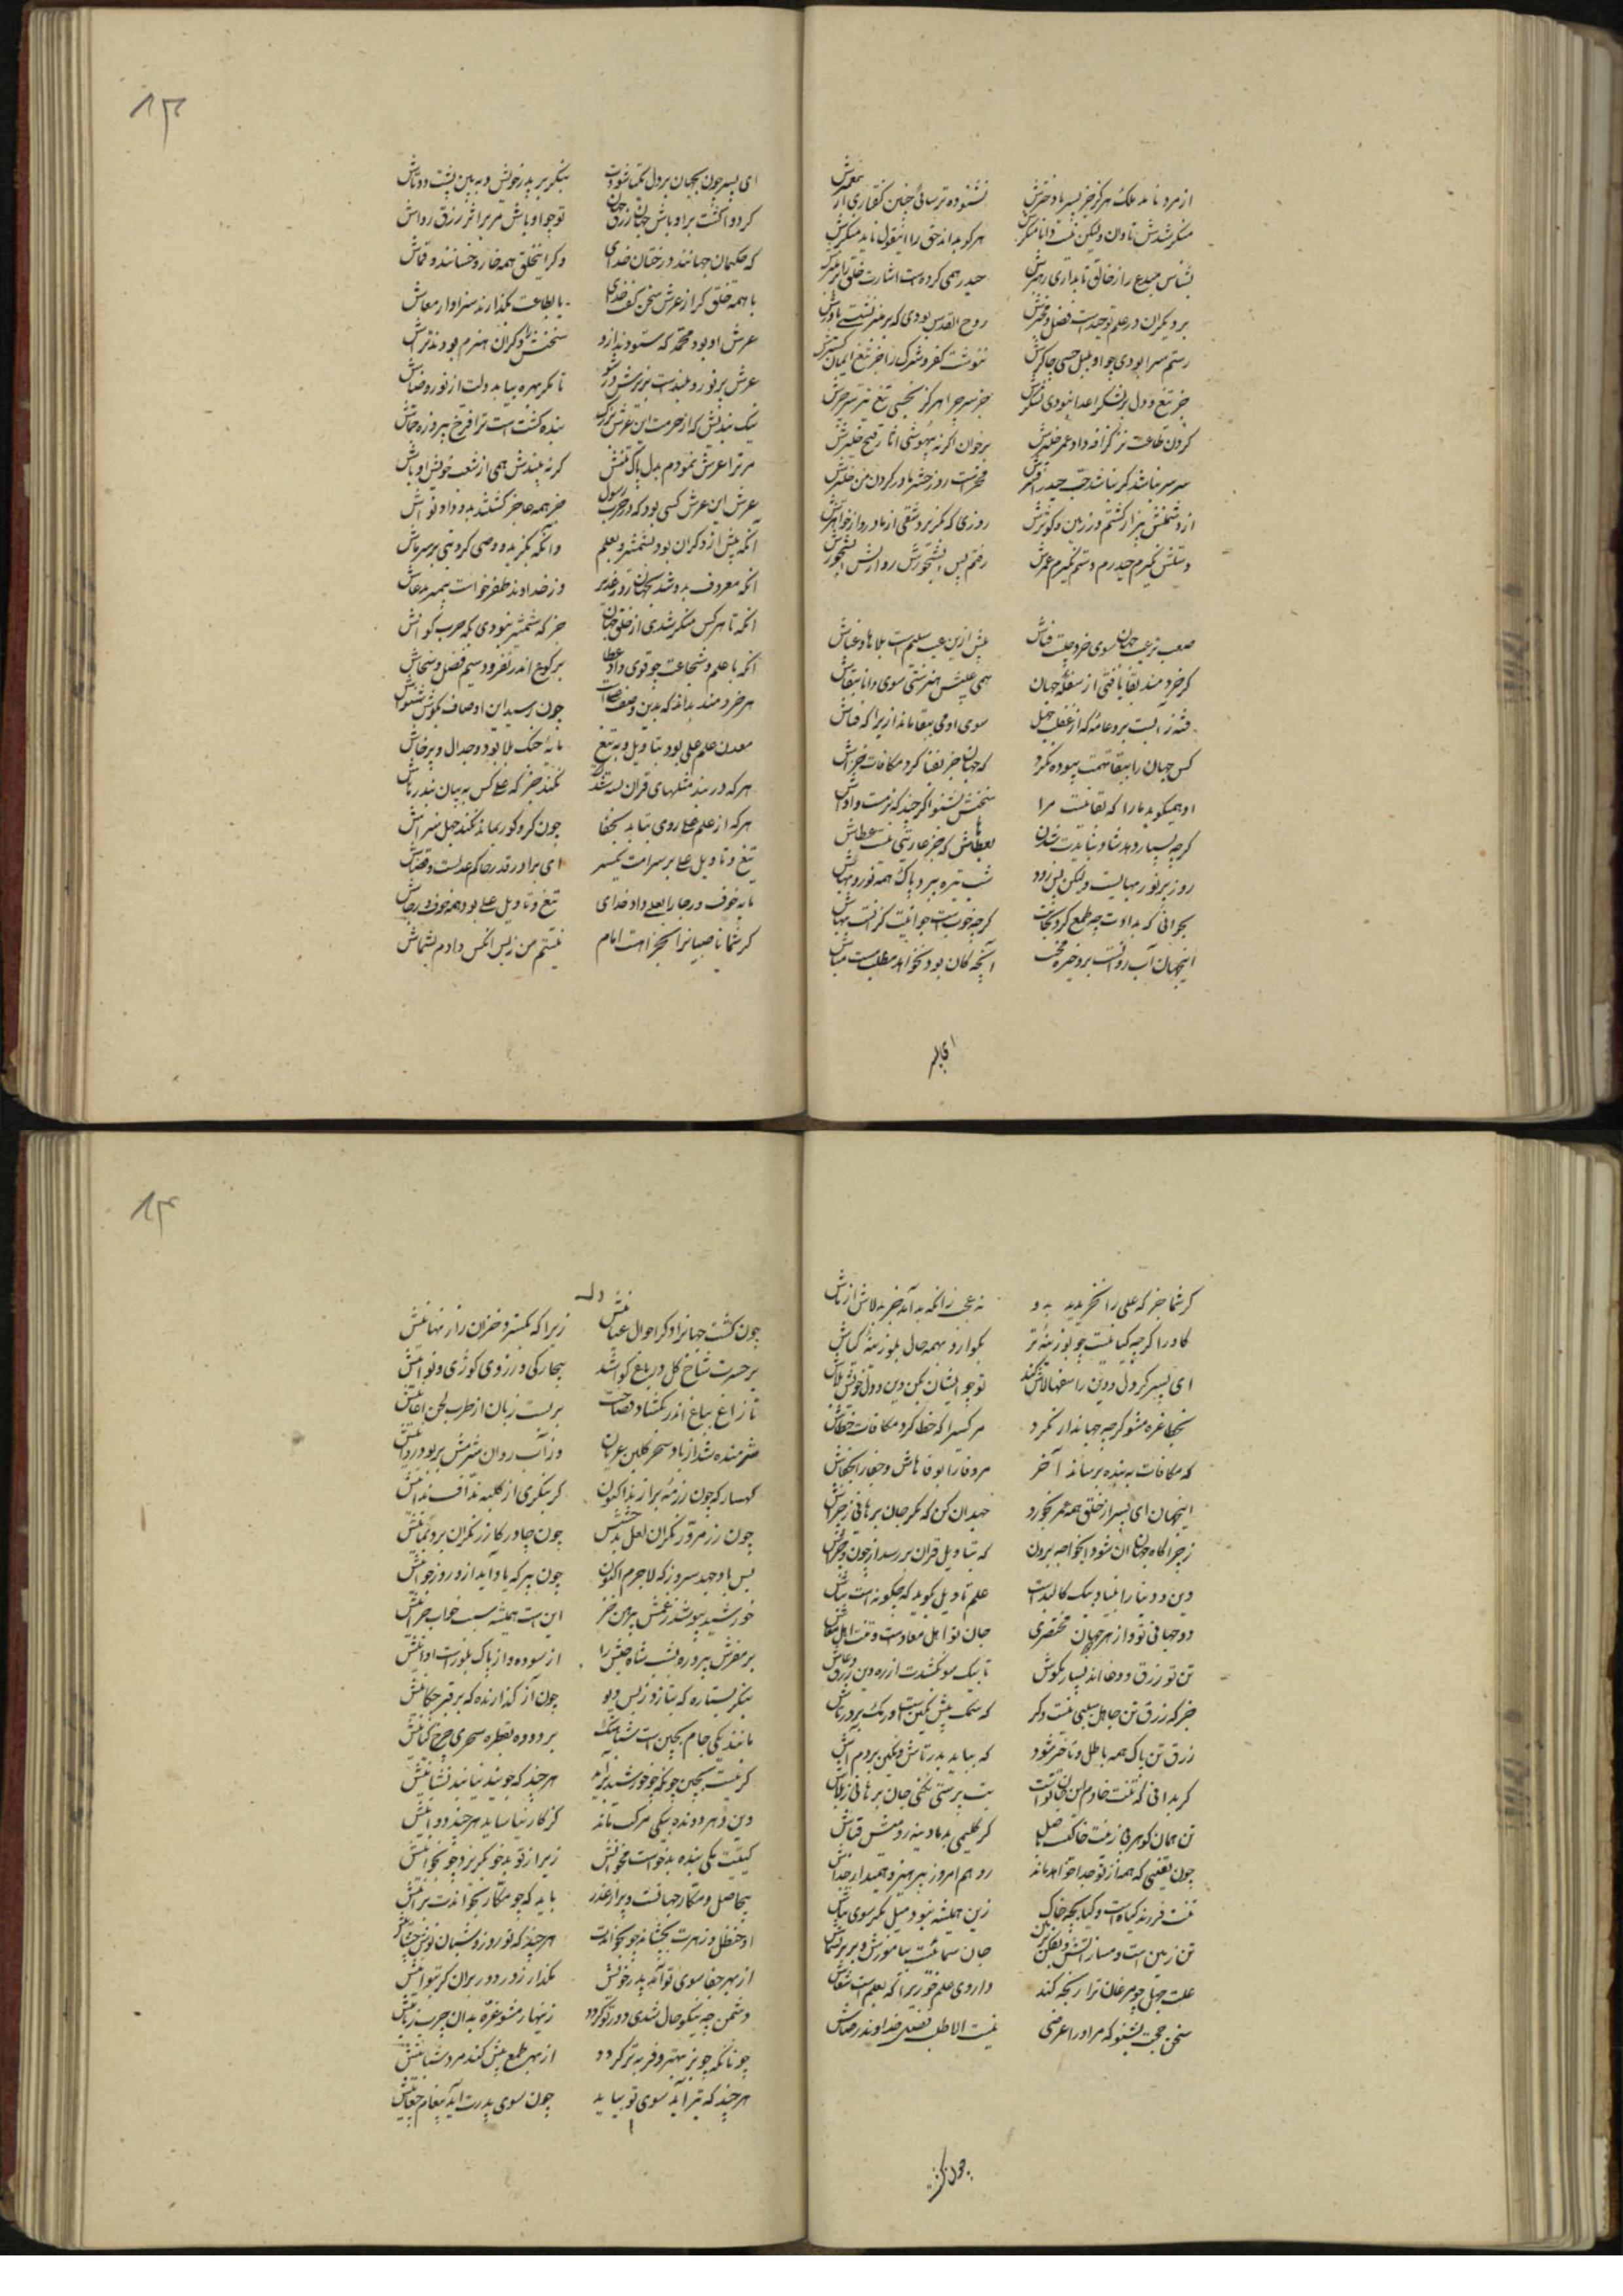 از مرد نامد ملک هرگز جز پسر یا دخترش نشنوده ترسائی چنین گفتاری از
منکر شدش نادان ولیکن نیست دانا منکرش هر کو بداند حق را اینقول ناید منکرش
بشناس مبدع را ز خالق تا نداری رهبرش حیدر همی کرده است اشارت خلق را
بر دیگران در علم توحید است فضل و مفخرش روح القدس بودی که بر منبر نشستی
رستم سزا بودی چو او دلدل چاکرش ننوشت کفر و شرک را جز تیغ ایمان گسترش
جز تیغ و دل بر لشکر اعدا نبودی لشکرش جز سر چرا هرگز نجستی تیغ
گردن طاعت نز گزافه داد عمر خیبرش برخوان اگر نه بیهوشی آثار فتح خیبرش
سر سر نباشد گر نباشد حب حیدر افسرش فخر است روز حشر مادر گردن من چنبرش
از دشمنش بیزار گشتم وز زمین و کوثرش روزی که بگریزد شقی از مادر و از خواهرش
دستش نگیرد حیدرم دستم نگیرد عمرش رفتم پس
صعب تر عیب جهان سوی خرد چیست فناش پیش ازین عیب سلیم است بلاها و عناش
گر خردمند بقا یافتی از سفله جهان همی عیبش هنرستی سوی دانا ببقاش
فتنه زآنست برو عامه که از غفلت و جهل سوی او می بقا ماند ازیرا که فناش
کس جهان را ببقا تهمت بیهوده نکرد که جهان جز بفنا کرد مکافات و جزاش
او همیگوید ما را که بقا نیست مرا سخنش بشنو اگر چند که نرمست آواش
گرچه بسیار دهد شاد نبایدت شدن بعطاهاش که جز عاریتی نیست عطاش
روز پر نور و بهاست ولیکن پس او شب تیره ببرد پاک همه نور و بهاش
بجوانی که بدادت چه طمع کرد بجانت گرچه خوبست جوانیت گرانست بهاش
اینجهان آب روانست برو خیره مخسب آنچه کان بود نخواهد مطلب مست مباش
ای پسر
۱۳
ای پسر چون بجهان بر دل یکتا شودت بنگر در پدر خویش و ببین پشت دوتاش
گر دوانست بر اوباش جهان رزق جهان تو چو اوباش مرو بر اثر رزق رواش
که حکیمان جهانند درختان خدای دگر اینخلق همه خار و خسانند و قماش
با همه خلق گر از عرش سخن گفت خدای تا بطاعت بگذارند سزاوار ثناش
عرش او بود محمد که ستودند ازو سخنش را دگران هیزم بودند و تراش
عرش پر نور و بلند است بزیرش در شو تا مگر بهره بیابد دلت از نور و ضیاش
نیک بندیش که از حرمت این عرش بزرگ بنده گشته است ترا فرخ و پیروز و بقاش
مر ترا عرش نمودم بدل پاک ببینش گر نه بیندش همی از شغب خویش اوباش
عرش این عرش کسی بود که در حرب رسول چو همه عاجز گشتند بدو داد لواش
آنکه بیش از دگران بود بشمشیر و بعلم وانکه بگزید و وصی کرد نبی بر سر ماش
آنکه معروف بدو شد بجهان روز غدیر وز خداوند ظفر خواست پیمبر بدعاش
آنکه تا هر کس منکر شدی از خلق جهان جز که شمشیر نبودی بگه حرب گواش
آنکه با علم و شجاعت چو قوی داد عطا برکوع اندر بفزود سیم فضل سخاش
هر خردمند بداند که بدین وصف و صفات چون رسید این اوصاف بگوش شنواش
معدن علم علی بود بتاویل و به تیغ مایه جنگ بلا بود و جدال و پرخاش
هر که در بند مثلهای قران بسته شد نکند جز که علی کس به بیان بند رهاش
هر که از علم علی روی بتابد بجفا چون کر و کور بماند بکند جهل سزاش
تیغ و تاویل علی بر سر امت یکسر ای برادر قدر حاکم عدلست و قضاش
مایه خوف و رجا را بعلی داد خدای تیغ و تاویل علی بود همه خوف و رجاش
گر شما ناصبیان را بجز او هست امام نیستم من زپس انکس دادم بشماش
گر شما جز که علی را بخریدید بدو نه عجب زانکه نداند خر بد لاش از ماش
گاو را گرچه گیا نیست چو لوزینه تر بگوارد همه حال ز لوزینه گیاش
ای پسر گر دل و دین را سفها لاش کنند تو چو ایشان مکن دین و دل خویش بلاش
بخطا غره مشو گرچه جهاندار نکرد مر کسی را که خطا کرد مکافات خطاش
که مکافات به بنده برساند آخر مر وفا را بوفاهاش و جفا را بجفاش
اینجهان ای پسر از خلق همه عمر بخورد جهد آن کن که مگر جان برهانی ز چراش
ز چراگاه جهان آن شود ای خواجه برون که بتاویل قران بررسد از چون و چراش
دین و دنیا را بنیاد بیک کالبد است علم تاویل بگوید که چگونه است بناش
دو جهانی تو و از هر جهان مختصری جان تو اهل معادست و تنت اهل معاش
تن تو زرق و دغا داند بسیار بکوش تا بیک سو نکشدت از ره دین زرق و دغاش
جز که زرق تن جاهل سببی نیست دگر که سمک پیش نگین است
زرق تن پاک همه باطل و ناچیز شود که بیاید پدر تاش و
گر بدانی که تنت خادم این جان تو است بت پرستی نکنی جان برهانی ز بلاش
تن همان گوهر خاکیست باصل گر گلیمی بد یا دیبه رومیست قباش
چون یقینی که همه از تو جدا خواهد ماند رو هم امروز بپرهیز و همیدار جداش
تنت فرزند گیاه است و گیا بچه خاک زین همیشه نبود میل مگر سوی نیاش
تن زمین است میارای و بفکن بزمین جان سمائیست بیاموزش و بر بر بسماش
علت جهل چو مر جان ترا رنجه کند داروی علم خور زیرا که بعلم است شفاش
سخن حجت بشنو که مر او را غرضی نیست الا طلب فضل خداوند و رضاش
چون گشت
۱۴
وله
چون گشت جهان را دگر احوال عیانیش زیرا که بگسترد خزان راز نهانیش
بر حسرت شاخ گل در باغ گوا شد بیچارگی و زردی و کوژی و نوانیش
تا زاغ بباغ اندر بگشاد فصاحت بر بست زبان از طرب لحن اغانیش
شرمنده شد از باد سحر گلبن عریان وز آب روان شرمش بربود روانیش
کهسار که چون رزمه بزاز بد اکنون گر بنگری از کلبه نداف ندانیش
چون زر مزور نگران لعل بدخشیش چون چادر گازر نگران برد یمانیش
بس باد جهد سرد ز که لاجرم اکنون چون پیر که یاد آید از روز جوانیش
خورشید بپوشد ز غمش پیرهن خز این است همیشه سبب خواب خزانیش
بر مفرش پیروزه بشب شاه حبش را از سوده و از پاک بلور است اوانیش
بنگر بستاره که بتازد ز پس دیو چون زر گدازنده که بر قیر چکانیش
مانند یکی جام یخین است شباهنگ بزدوده بقطره سحری چرخ کیانیش
گر نیست یخین چونکه چو خورشید برآید هر چند که جویند نیابند نشانیش
دین دهر دونده بیکی مرکب ماند کز کار نیاساید هر چند دوانیش
گیتیت یکی بنده بدخوست مخوانش زیرا ز تو بدخو بگریزد چو بخوانیش
بیحاصل و مکار جهانیست پر از غدر باید که چو مکار بخواندت برانیش
او حنظل و زهرت بچشاند چو بخواندت هر چند که تو روز و شبان نوش چشانیش
از بهر جفا سوی تو آمد بدر خویش بگذار و ز در دور بران گر بتوانیش
دشمن چو نیکو حال شدی گرد تو گردد زنهار مشو غره بدان چرب زبانیش
چونانکه چو بز بهتر و فربه تر گردد از بهر طمع بیش کند مرد شبانیش
هر چند که تیر آید سوی تو بیاید چون سوی پدرت آید پیغام جفانیش